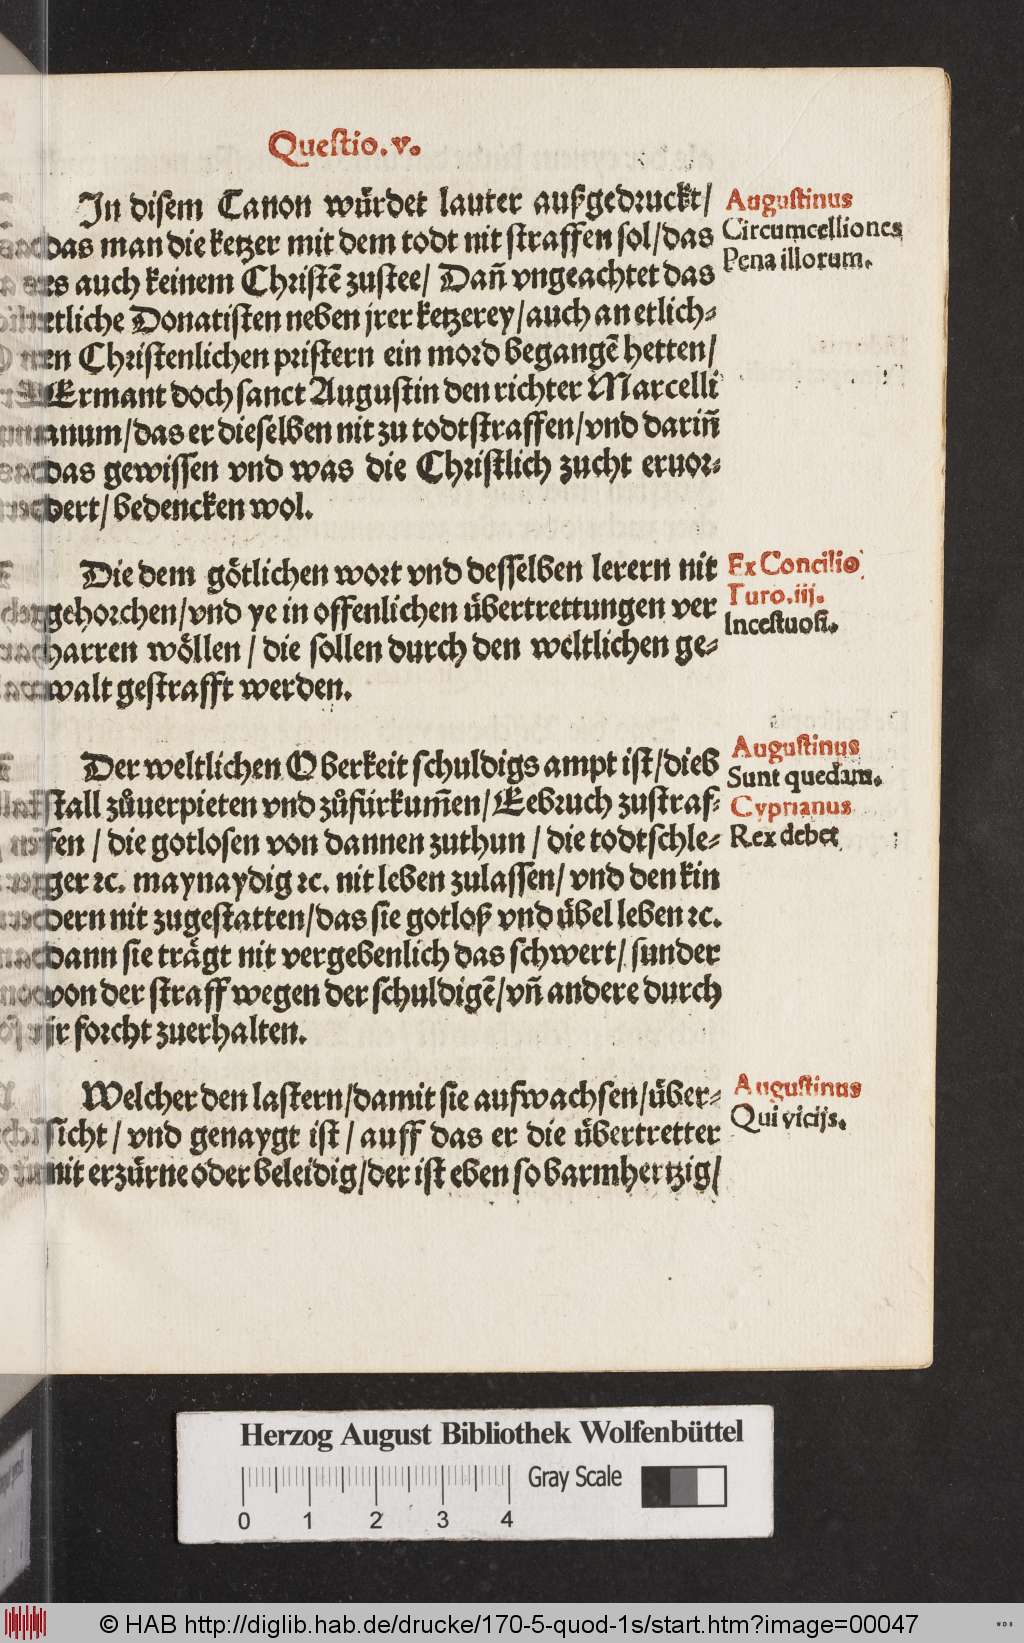 Questio. v.
In disem Canon würdet lauter außgedruckt/
das man die ketzer mit dem todt nit straffen sol/das
es auch keinem Christẽ zustee/ Dañ vngeachtet das
etliche Donatisten neben jrer ketzerey/auch an etlich-
en Christenlichen pristern ein mord begangẽ hetten/
Ermant doch sanct Augustin den richter Marcelli
anum/das er dieselben nit zu todt straffen/vnd dariñ
das gewissen vnd was die Christlich zucht eruor-
dert/bedencken wol.
Augustinus
Circumcelliones
Pena illorum.
Die dem götlichen wort vnd desselben lerern nit
gehorchen/vnd ye in offenlichen übertrettungen ver
harren wöllen/ die sollen durch den weltlichen ge-
walt gestrafft werden.
Ex Concilio
Turo. iij.
Incestuosi.
Der weltlichen Oberkeit schuldigs ampt ist/dieb
stall zůuerpieten vnd zůfürkum̃en/Eebruch zustraf-
fen/ die gotlosen von dannen zuthun/ die todtschle-
ger ꝛc. maynaydig ꝛc. nit leben zulassen/ vnd den kin
dern nit zugestatten/das sie gotloß vnd übel leben ꝛc.
dann sie trägt nit vergebenlich das schwert/ sunder
von der straff wegen der schuldigẽ/vñ andere durch
jr forcht zuerhalten.
Augustinus
Sunt quedam.
Cyprianus
Rex debet
Welcher den lastern/damit sie aufwachsen/über-
sicht/ vnd genaygt ist/ auff das er die übertretter
nit erzürne oder beleidig/der ist eben so barmhertzig/
Augustinus
Qui vicijs.
Herzog August Bibliothek Wolfenbüttel
Gray Scale
0 1 2 3 4
© HAB http://diglib.hab.de/drucke/170-5-quod-1s/start.htm?image=00047